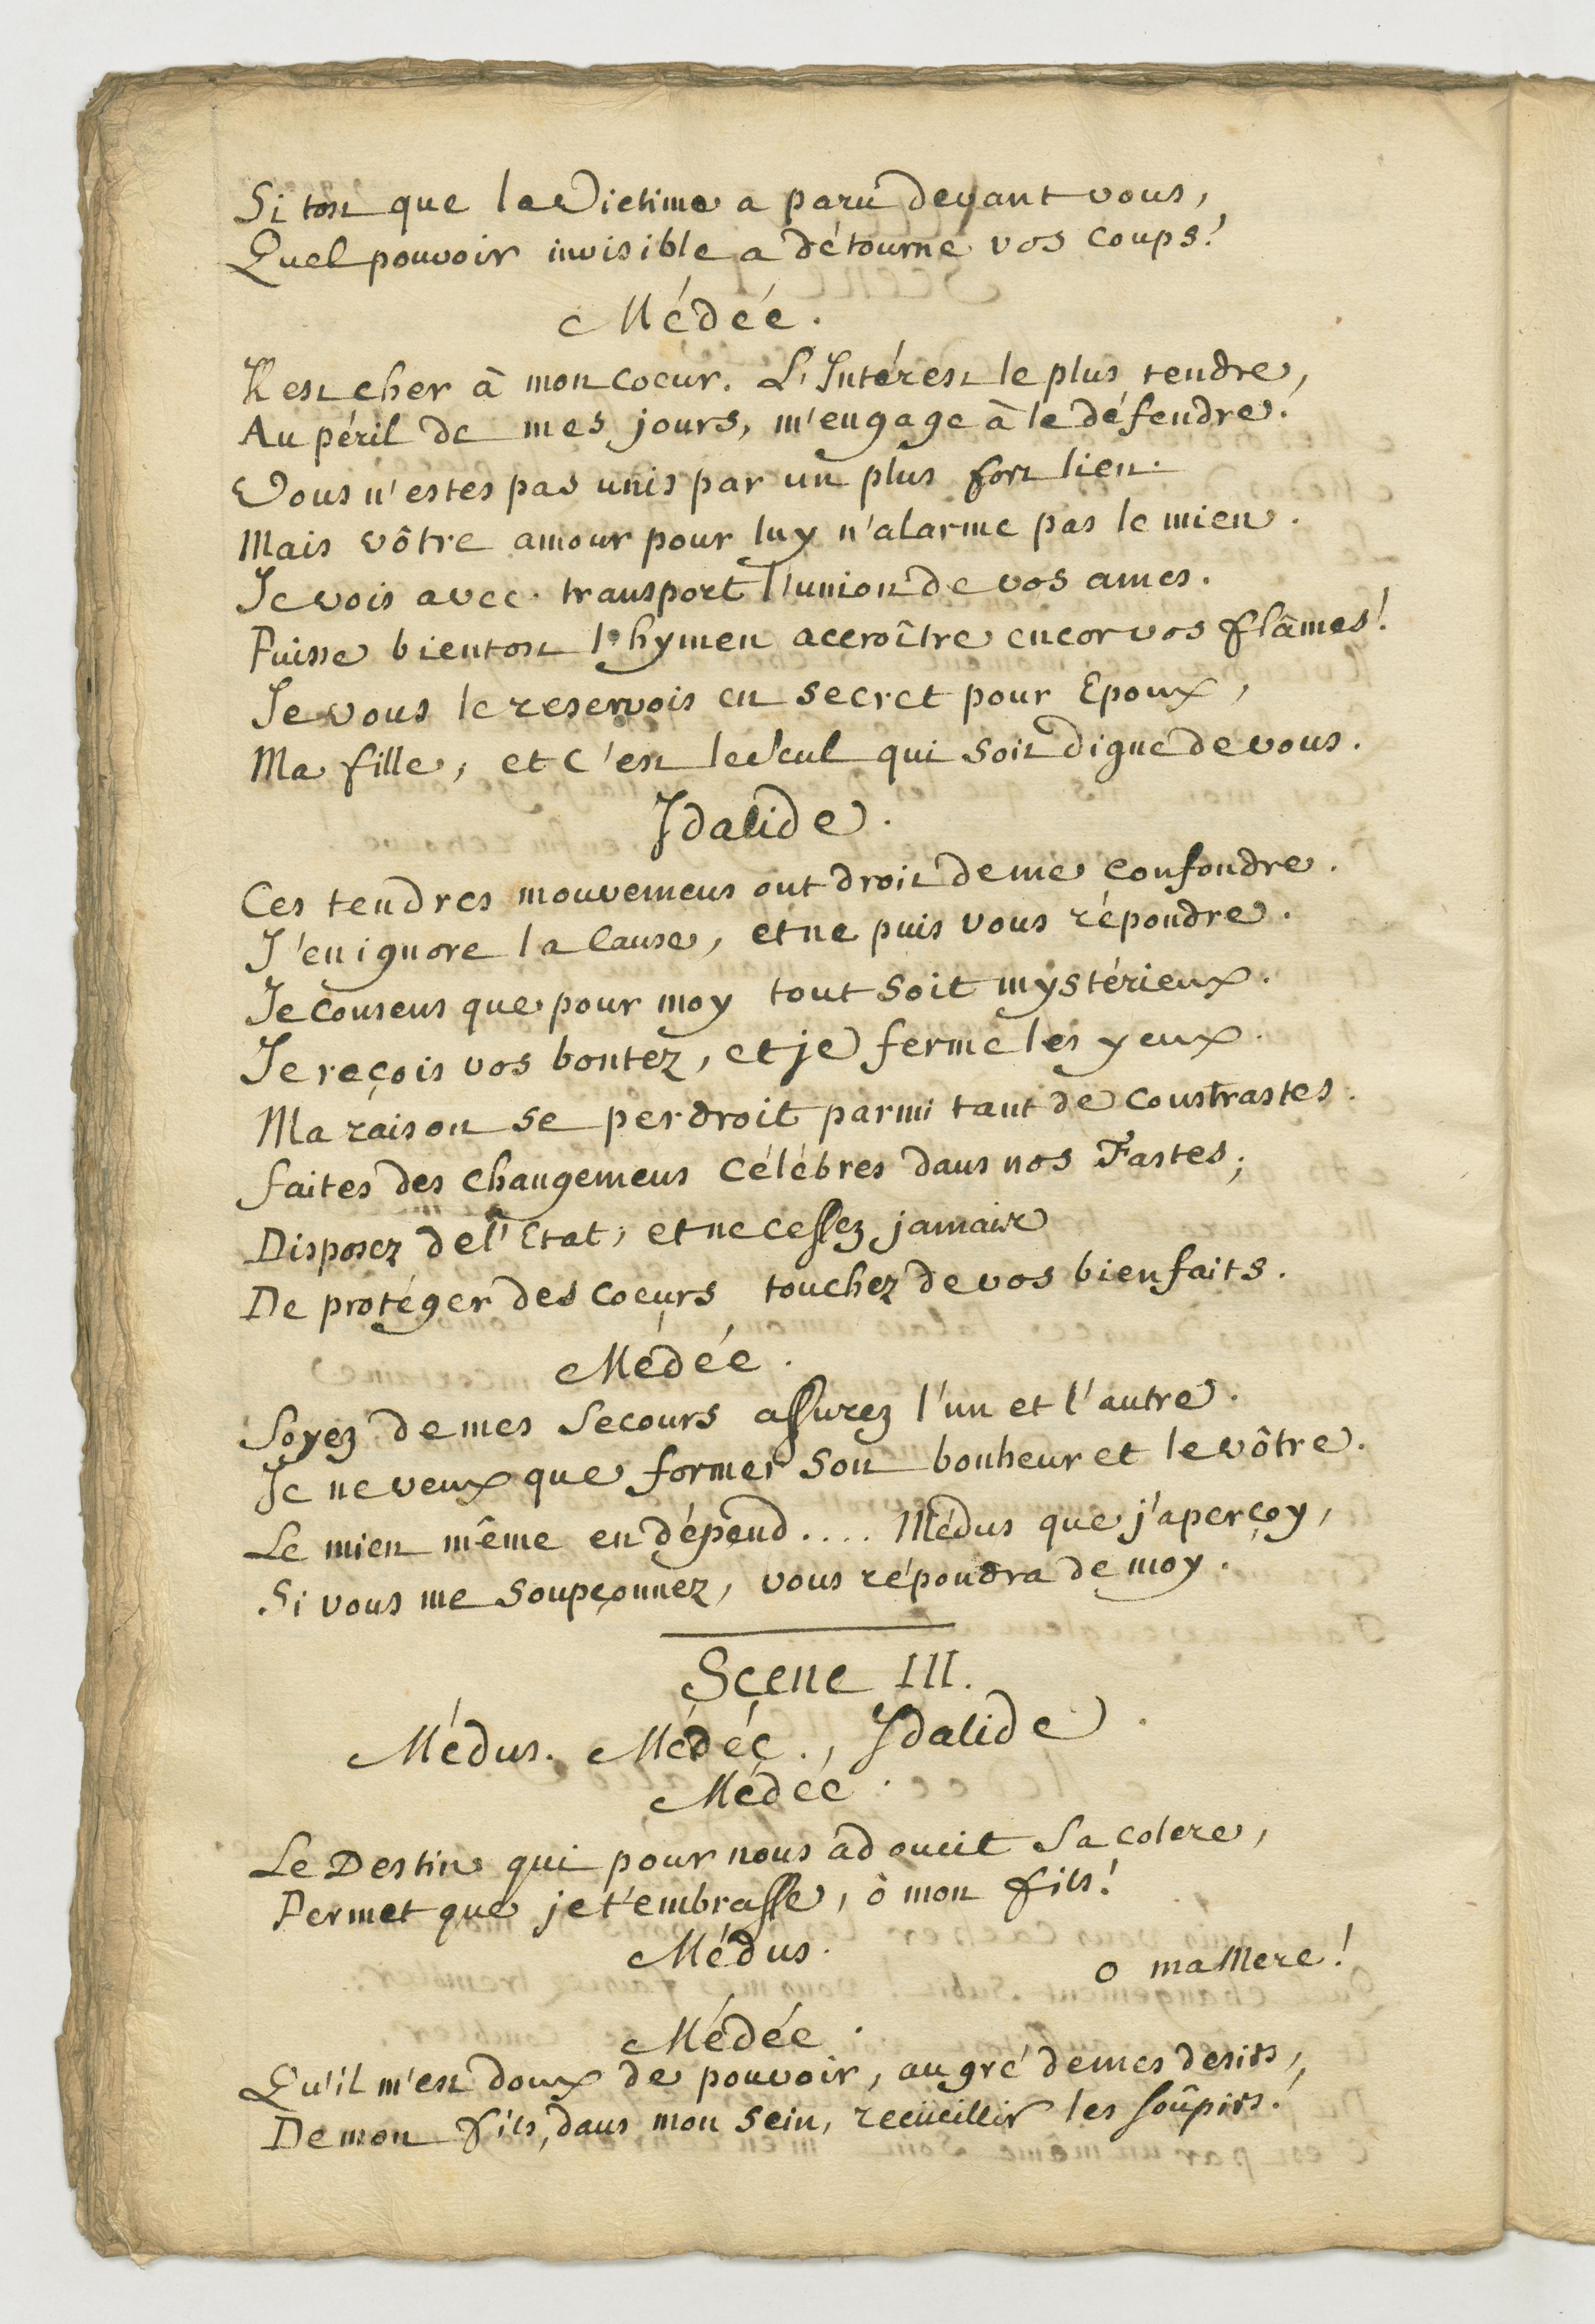 Si tost que la Victime a paru devant vous,
Quel pouvoir invisible a détourné vos coups!
Médée.
Il est cher à mon coeur. L'Intérest le plus tendre,
Au péril de mes jours, m'engage à le défendre.
Vous n'estes pas unis par un plus fort lien.
Mais vôtre amour pour luy n'alarme pas le mien.
Je vois avec transport l'union de vos ames.
Puisse bientost l'hymen accroître encor vos flâmes!
Je vous le reservois en secret pour Epoux,
Ma fille, et c'est le seul qui soit digne de vous.
Idalide.
Ces tendres mouvemens ont droit de me confondre.
J'en ignore la cause, et ne puis vous répondre.
Je consens que pour moy tout soit mystérieux.
Je reçois vos bontez, et je ferme les yeux.
Ma raison se perdroit parmi tant de constrastes.
faites des changemens célébres dans nos Fastes;
Disposez de l'Etat, et ne cessez jamais
De protéger des coeurs touchez de vos bienfaits.
Médée.
Soyez de mes secours assurez l'un et l'autre.
Je ne veux que former son bonheur et le vôtre.
Le mien même en dépend.... Médus que j'aperçoy,
Si vous me soupçonnez, vous répondra de moy.
Scene III.
Médus. Médée., Idalide.
Médée.
Le Destin qui pour nous adoucit sa colere,
Permet que je t'embrasse, ô mon fils!
Médus.
o ma Mere!
Médée.
Qu'il m'est doux de pouvoir, au gré de mes desirs,
De mon fils, dans mon sein, recüeillir les soûpirs!